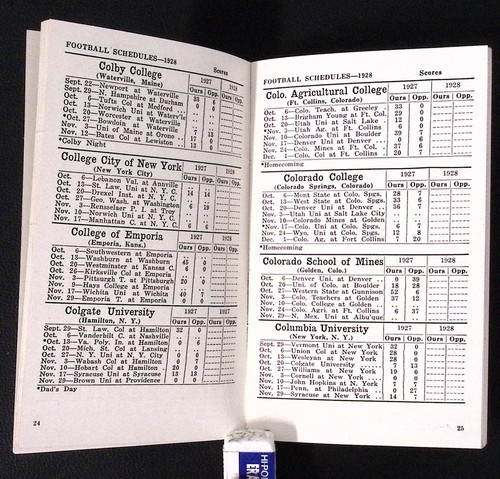 FOOTBALL SCHEDULES—1928
Scores
Colby College
(Waterville, Maine)
1927 1928
Ours Opp. Ours Opp.
Sept. 22—Newport at Waterville
Sept. 29—N. Hampshire at Durham
Oct. 6—Tufts Col at Medford
Oct. 13—Norwich Uni at Waterville
Oct. 27—Bowdoin at Waterville
Nov. 3—Uni of Maine at Orono
Nov. 12—Bates Col at Lewiston
*Colby Night
College City of New York
(New York City)
1927 1928
Ours Opp. Ours Opp.
Oct. 6—Lebanon Val. at Annville
Oct. 13—St. Law. Uni at N. Y. C. 14 14
Oct. 20—Drexel Inst. at N. Y. C.
Oct. 27—Geo. Wash. at Washington
Nov. 3—Rensselaer P. at Troy 6 19
Nov. 10—Norwich Uni at N. Y. C.
Nov. 17—Manhattan C. at N. Y. C.
College of Emporia
(Emporia, Kans.)
1927 1928
Ours Opp. Ours Opp.
Oct. 6—Southwestern at Emporia
Oct. 13—Washburn at Washburn 45 0
Oct. 20—Westminster at Kansas C 6 0
Oct. 26—Kirksville Col at Emporia
Nov. 3—Pittsburg T. C. at Pittsburg 20 0
Nov. 9—Hays College at Emporia
Nov. 17—Wichita Uni at Wichita 40 7
Nov. 29—Emporia T. at Emporia 0 0
Colgate University
(Hamilton, N. Y.)
1927 1928
Ours Opp. Ours Opp.
Sept. 29—St. Law. Col at Hamilton 32
Oct. 6—Vanderbilt C. at Nashville
Oct. *13—Va. Poly. In. at Hamilton 6 0
Oct. 20—Mich. St. Col at Lansing
Oct. 27—N. Y. Uni at N. Y. City 0 0
Nov. 3—Wabash Col at Hamilton
Nov. 10—Hobart Col at Hamilton 20 0
Nov. 17—Syracuse Uni at Syracuse 13 13
Nov. 29—Brown Uni at Providence 0 0
*Dad's Day
24
FOOTBALL SCHEDULES—1928
Scores
Colo. Agricultural College
(Ft. Collins, Colorado)
1927 1928
Ours Opp. Ours Opp.
Oct. 6—Colo. Teach. at Greeley 33 0
Oct. 13—Brigham Young at Ft. Col. 29 0
Oct. 20—Utah Uni at Salt Lake 12 6
*Nov. 3—Utah Ag. at Ft. Collins 6 0
Nov. 10—Colorado Uni at Boulder 39 7
Nov. 17—Denver Uni at Denver 0 6
Nov. 24—Colo. Mines at Ft. Col. 37 6
Dec. 1—Colo. Col at Ft. Collins 20 7
*Homecoming
Colorado College
(Colorado Springs, Colorado)
1927 1928
Ours Opp. Ours Opp.
Oct. 6—Mont State at Colo. Spgs. 28
Oct. 13—West State at Colo. Spgs. 33 6
Oct. 20—Denver Uni at Denver 36 7
Nov. 3—Utah Uni at Salt Lake City
Nov. 10—Colorado Mines at Golden
*Nov. 17—Colo. Uni at Colo. Spgs. 6 7
Nov. 24—Wyo. Uni at Colo. Spgs. 12 8
Dec. 1—Colo. Ag. at Fort Collins 7 20
*Homecoming
Colorado School of Mines
(Golden, Colo.)
1927 1928
Ours Opp. Ours Opp.
Oct. 6—Denver Uni at Denver 0 39
Oct. 20—Uni of Colo. at Boulder 18 28
Oct. 27—Western State at Gunnison 52 6
Nov. 3—Colo. Teachers at Golden 37 12
Nov. 10—Colo. College at Golden
Nov. 24—Colo. Agri. at Ft. Collins 6 37
Nov. 29—N. Mex. Uni at Albu'que
Columbia University
(New York, N. Y.)
1927 1928
Ours Opp. Ours Opp.
Sept. 29—Vermont Uni at New York 32 0
Oct. 6—Union Col at New York 28 0
Oct. 13—Wesleyan at New York 28 0
Oct. 20—Colgate University 7 13
Oct. 27—Williams at New York 19 0
Nov. 3—Cornell at New York 0 0
Nov. 10—John Hopkins at N. York 7 7
Nov. 17—Penn. at Philadelphia 0 27
Nov. 29—Syracuse at New York 14 7
25
HI-POL
ERA